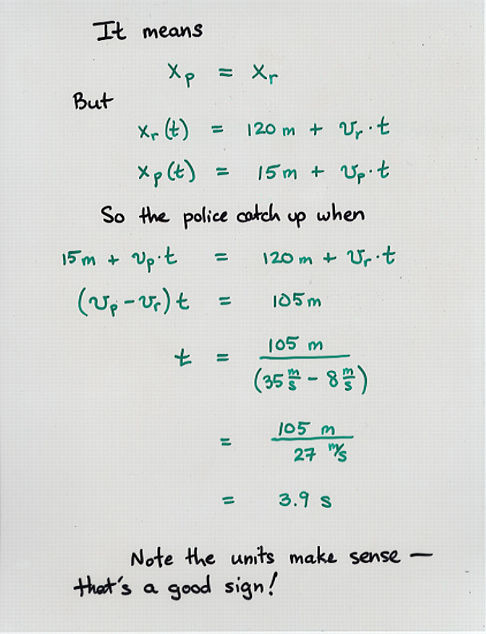 It means
xp = xr
But
xr(t) = 120 m + vr·t
xp(t) = 15 m + vp·t
So the police catch up when
15 m + vp·t = 120 m + vr·t
(vp - vr) t = 105 m
t = 105 m / (35 m/s - 8 m/s)
= 105 m / 27 m/s
= 3.9 s
Note the units make sense —
that's a good sign!